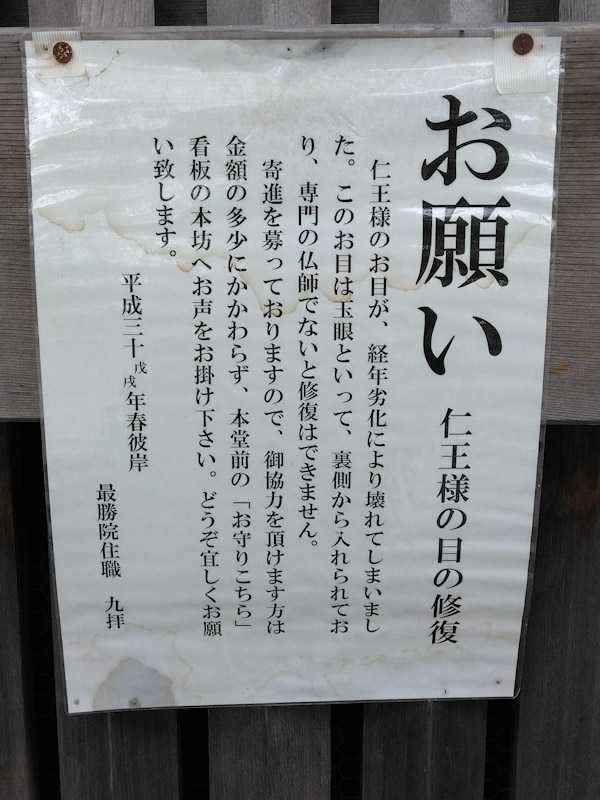 お願い　仁王様の目の修復
仁王様のお目が、経年劣化により壊れてしまいまし
た。このお目は玉眼といって、裏側から入れられてお
り、専門の仏師でないと修復はできません。
寄進を募っておりますので、御協力を頂けます方は
金額の多少にかかわらず、本堂前の「お守りこちら」
看板の本坊へお声をお掛け下さい。どうぞ宜しくお願
い致します。
平成三十戊戌年春彼岸
最勝院住職　九拝